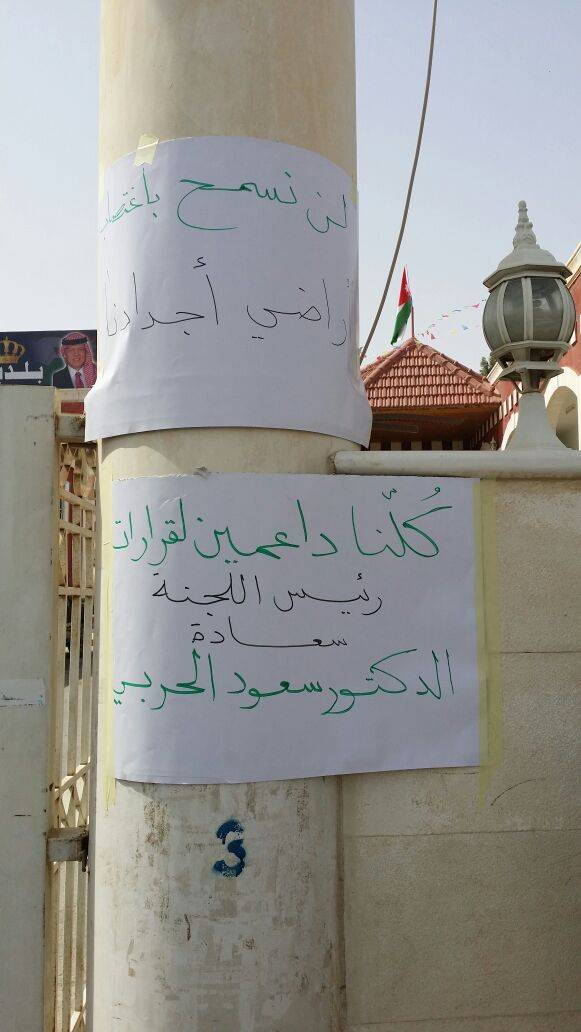 لن نسمح باغتصاب
أراضي أجدادنا
كُلّنا داعمين لقرارات
رئيس اللجنة
سعادة
الدكتور سعود الحربي
3